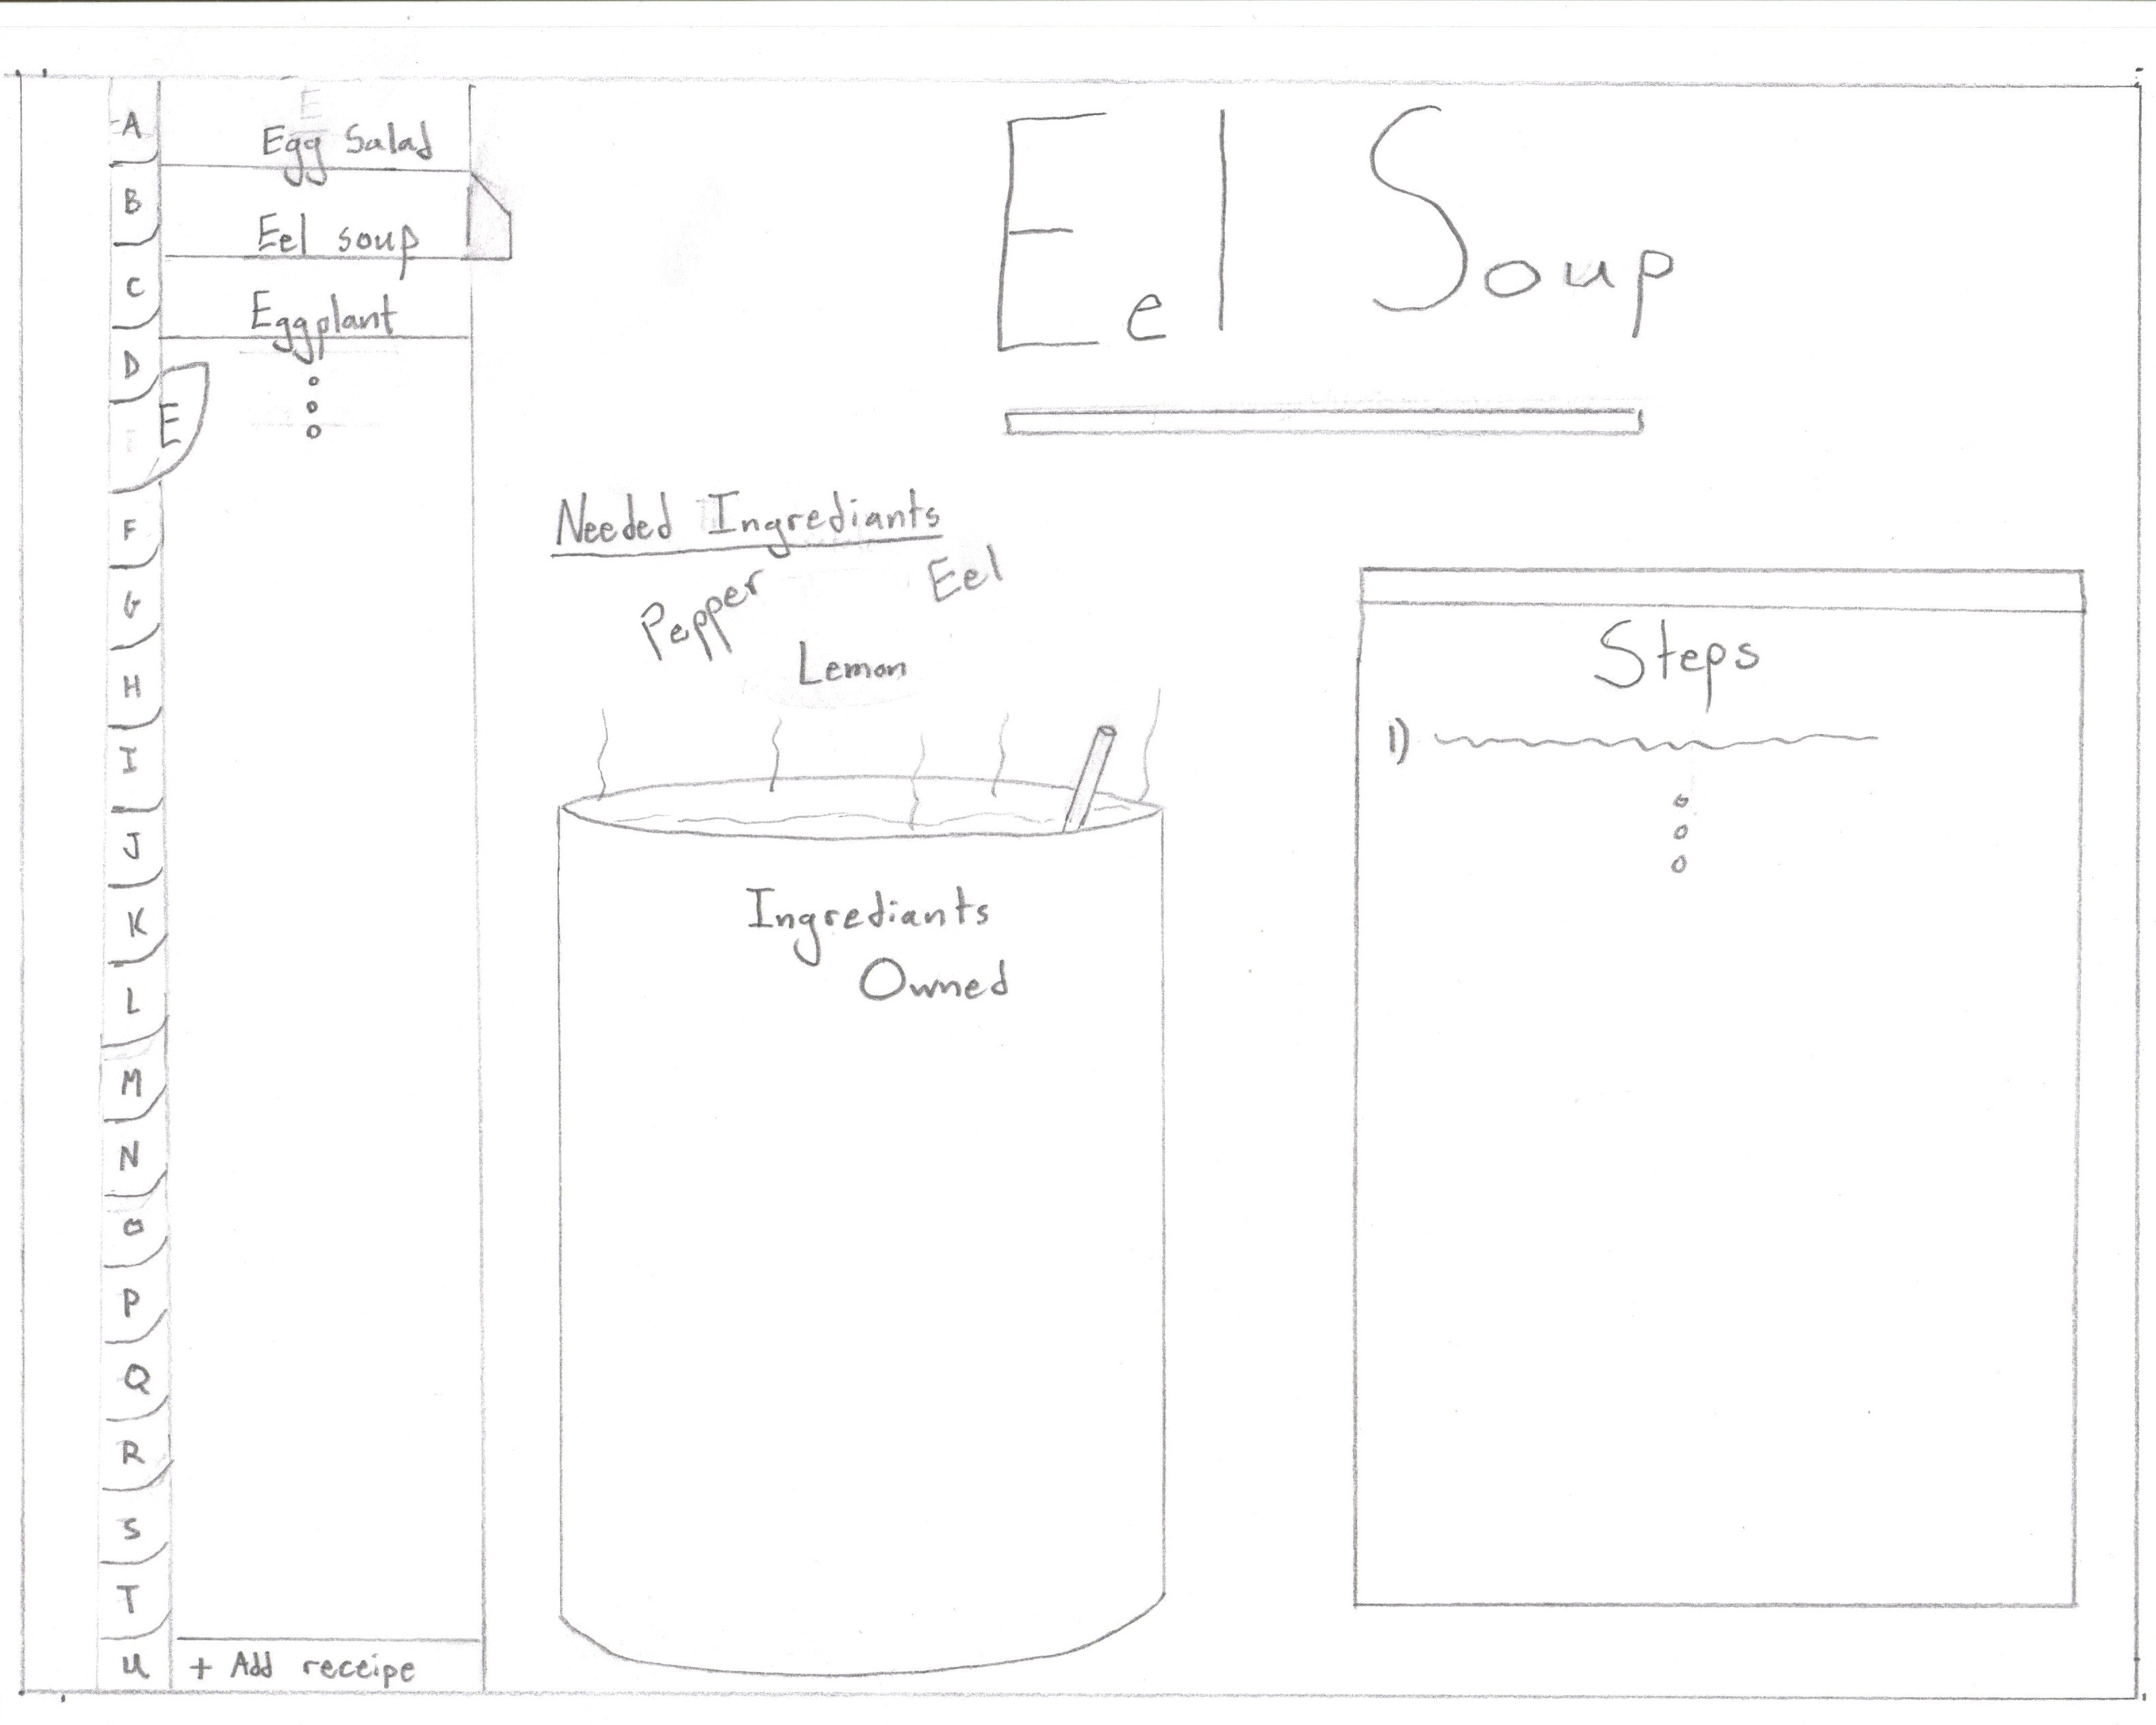 A
B
C
D
E
F
G
H
I
J
K
L
M
N
O
P
Q
R
S
T
U
Egg Salad
Eel soup
Eggplant
+ Add receipe
Eel Soup
Needed Ingrediants
Pepper
Eel
Lemon
Ingrediants
Owned
Steps
1)